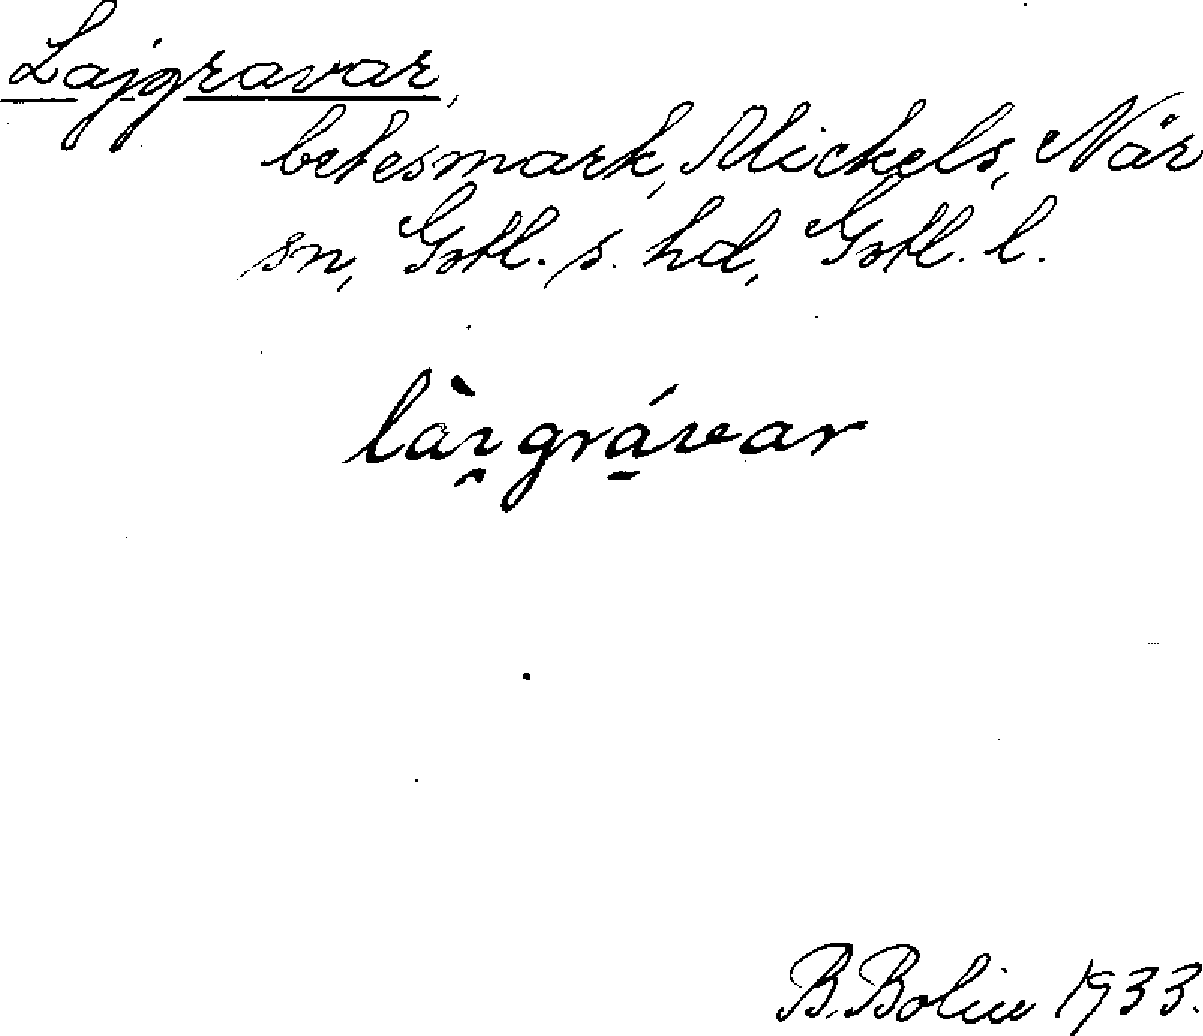 Lajgravar,
betesmark, Mickels, När
sn, Gotl. s. hd, Gotl. l.
làı̯grá̱var
B. Bolin 1933.